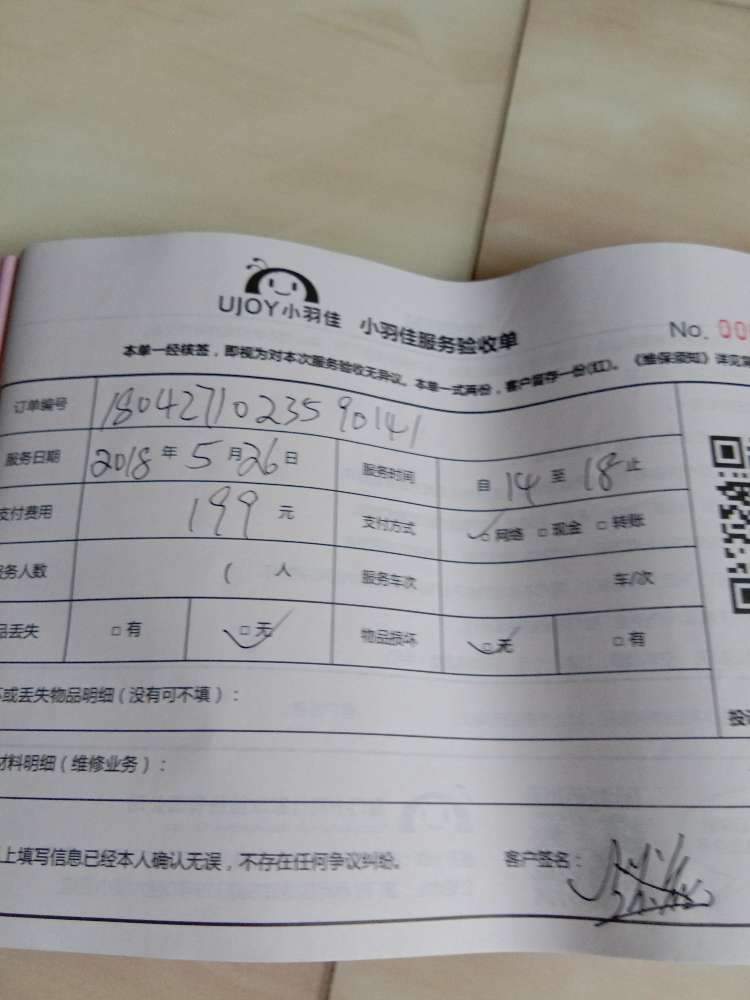 UJOY小羽佳 小羽佳服务验收单
No. 00
本单一经核签，即视为对本次服务验收无异议。本单一式两份，客户留存一份(红)。《维保须知》详见
订单编号 1804271023590141
服务日期 2018 年 5 月 26 日 服务时间 自 14 至 18 止
支付费用 199 元 支付方式 ☑网络 □现金 □转账
务人数 1 人 服务车次 车/次
品丢失 □有 ☑无 物品损坏 ☑无 □有
或丢失物品明细（没有可不填）：
投
材料明细（维修业务）：
上填写信息已经本人确认无误，不存在任何争议纠纷。 客户签名：